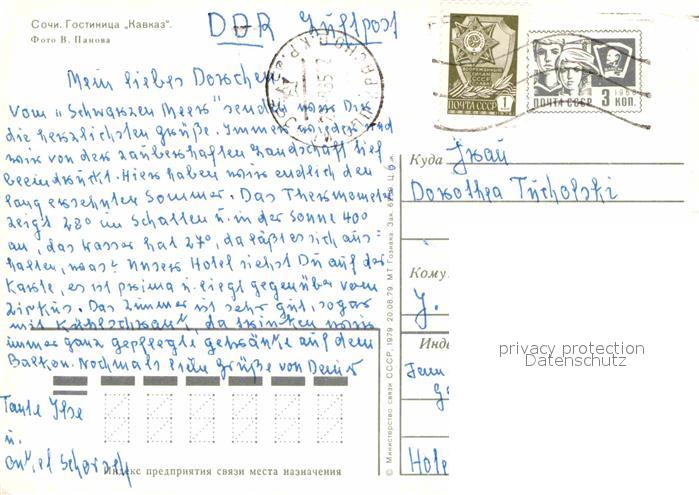 Сочи. Гостиница „Кавказ".
Фото В. Панова
DDR Luftpost
Mein liebes Dorchen!
Vom „Schwarzen Meer" senden wir Dir
die herzlichsten Grüße. Immer wieder sind
wir von der zauberhaften Landschaft tief
beeindruckt. Hier haben wir endlich den
lang ersehnten Sommer. Das Thermometer
zeigt 28° im Schatten u. in der Sonne 40°
an, das Wasser hat 27°, da läßt es sich aus-
halten, was? Unser Hotel siehst Du auf der
Karte, es ist prima u. liegt gegenüber vom
Zirkus. Das Zimmer ist sehr gut, sogar
mit Kühlschrank, da trinken wir
immer ganz gepflegte Getränke auf dem
Balkon. Nochmals liebe Grüße von Deiner
Tante Ilse
u.
Onkel
Индекс предприятия связи места назначения
ПОЧТА СССР 1
ПОЧТА СССР 3 КОП.
1966
Куда
Frau
Dorothea Tucholski
Кому
Инде
privacy protection
Datenschutz
© Министерство связи СССР, 1979 20.08.79. МТ Гознака. Зак.